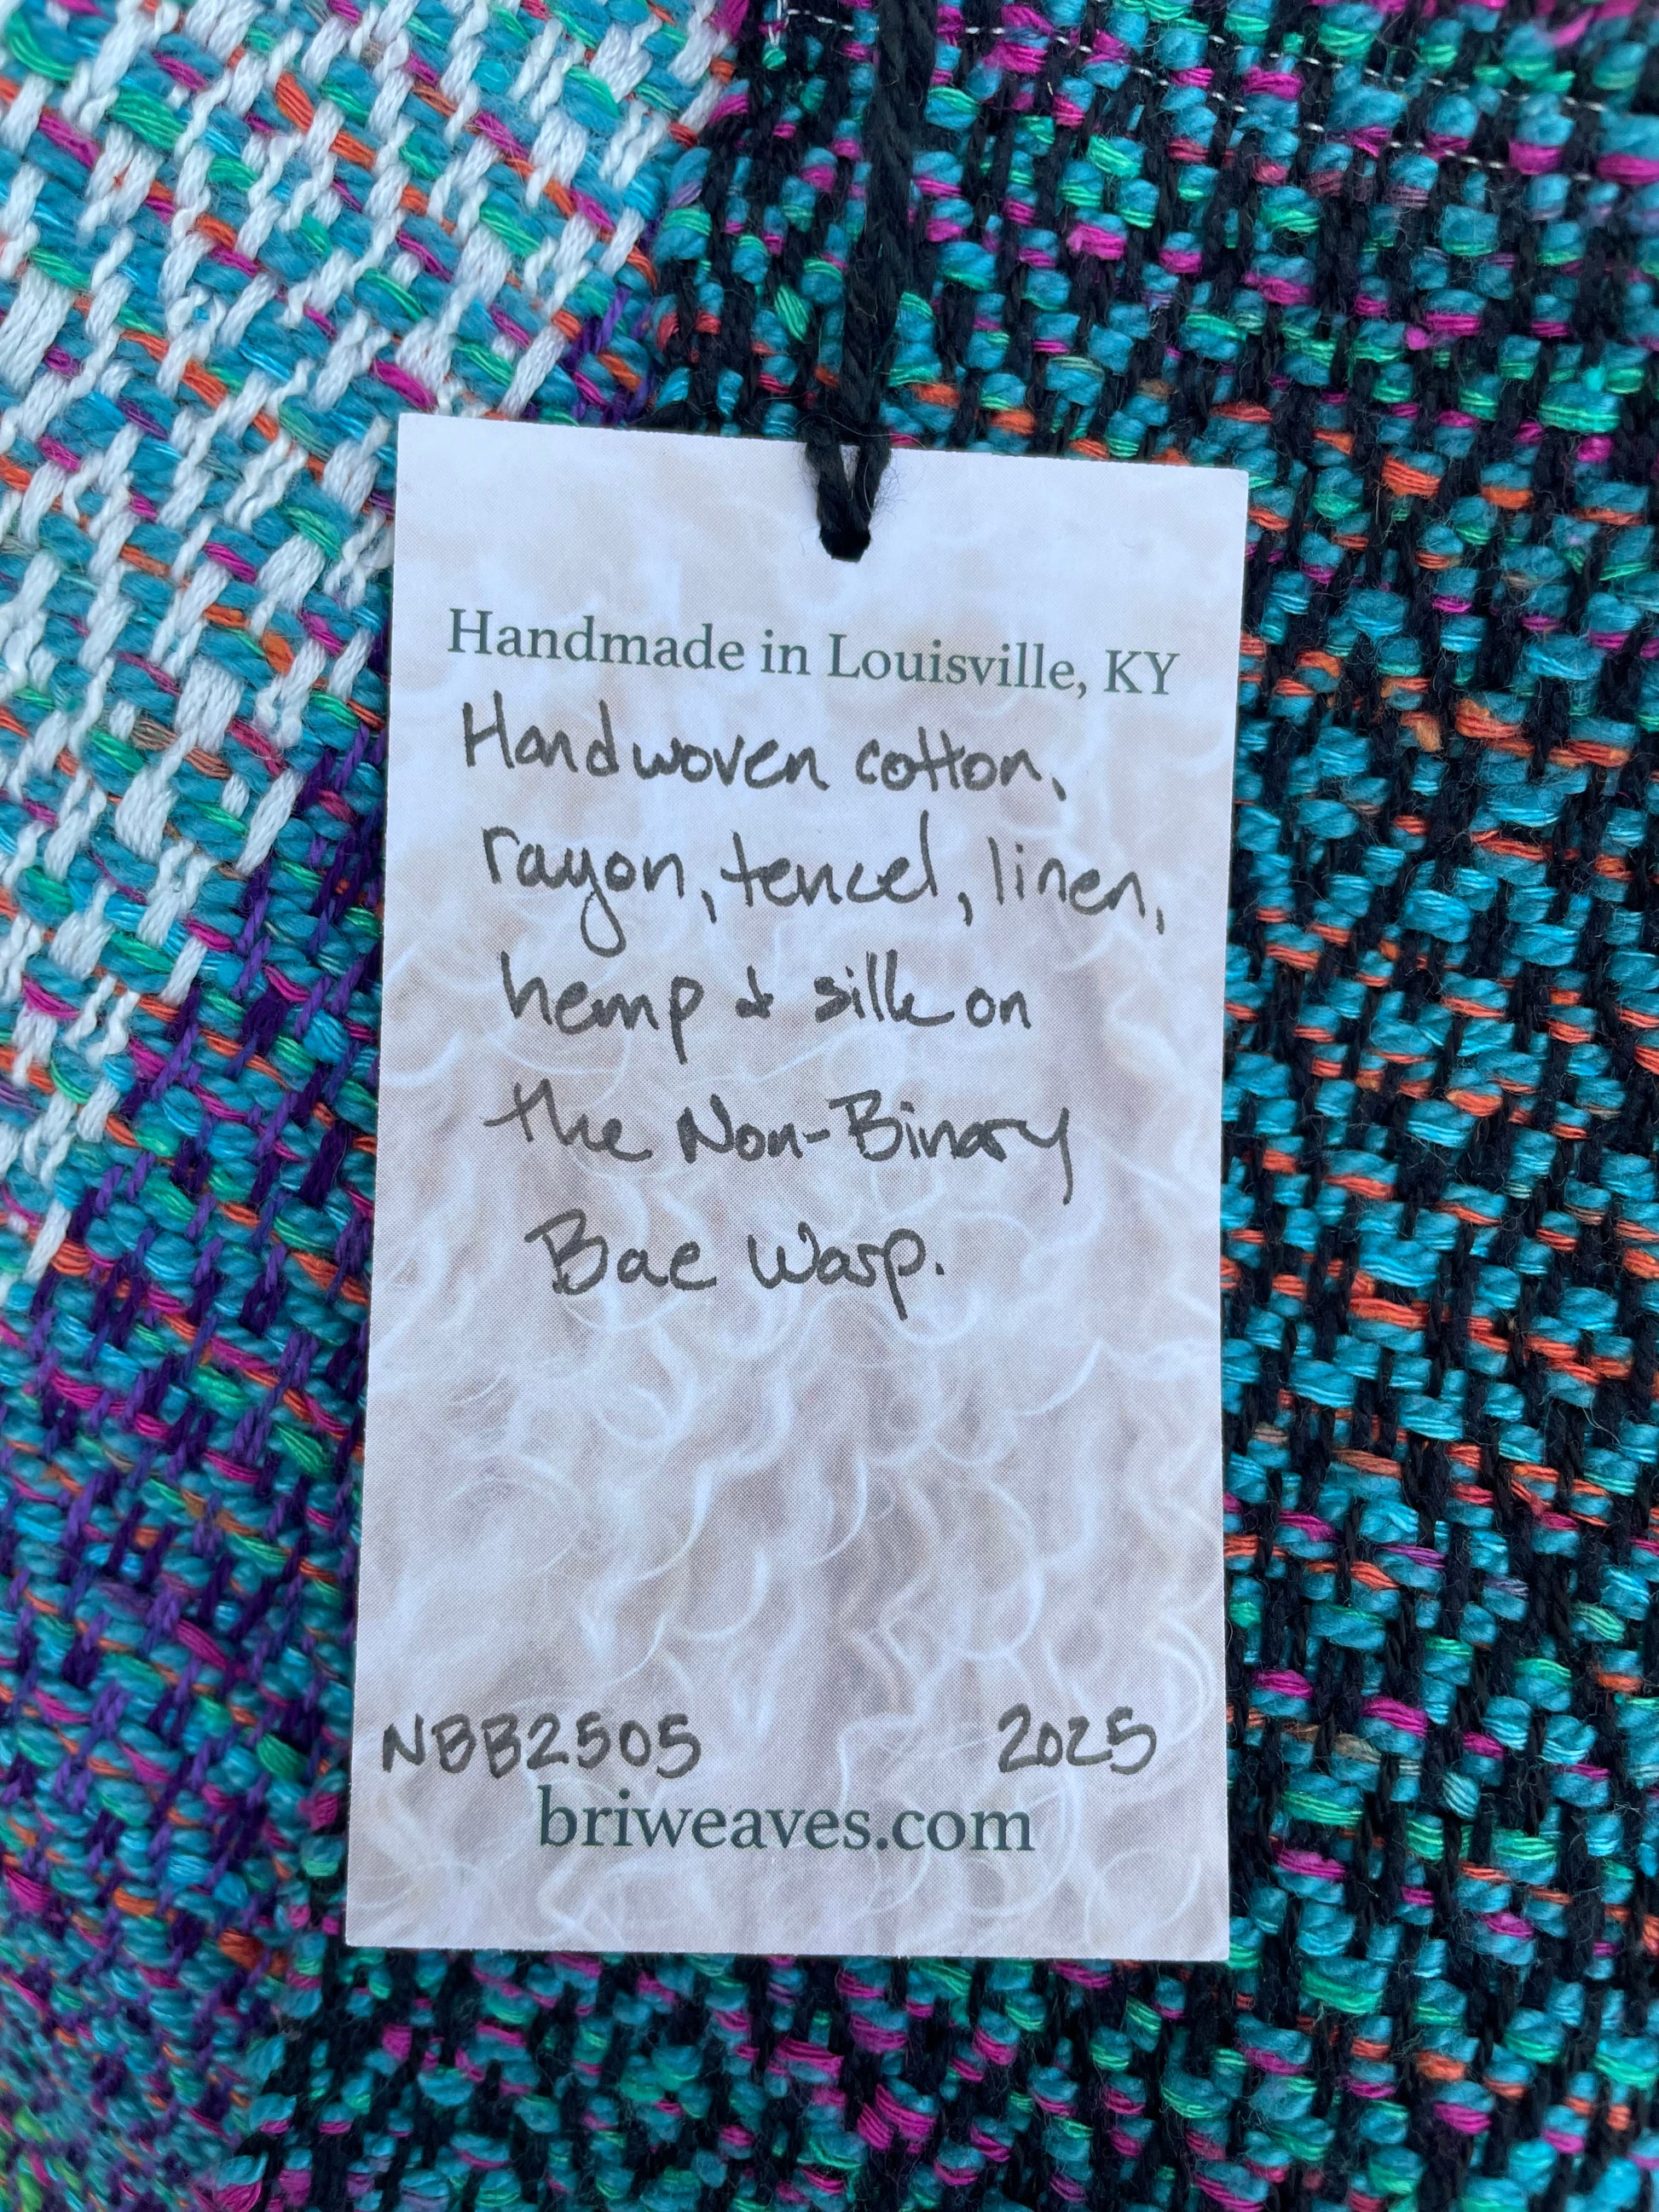 Handmade in Louisville, KY
Handwoven cotton,
rayon, tencel, linen,
hemp & silk on
the Non-Binary
Bae Warp.
NBB2505 2025
briweaves.com